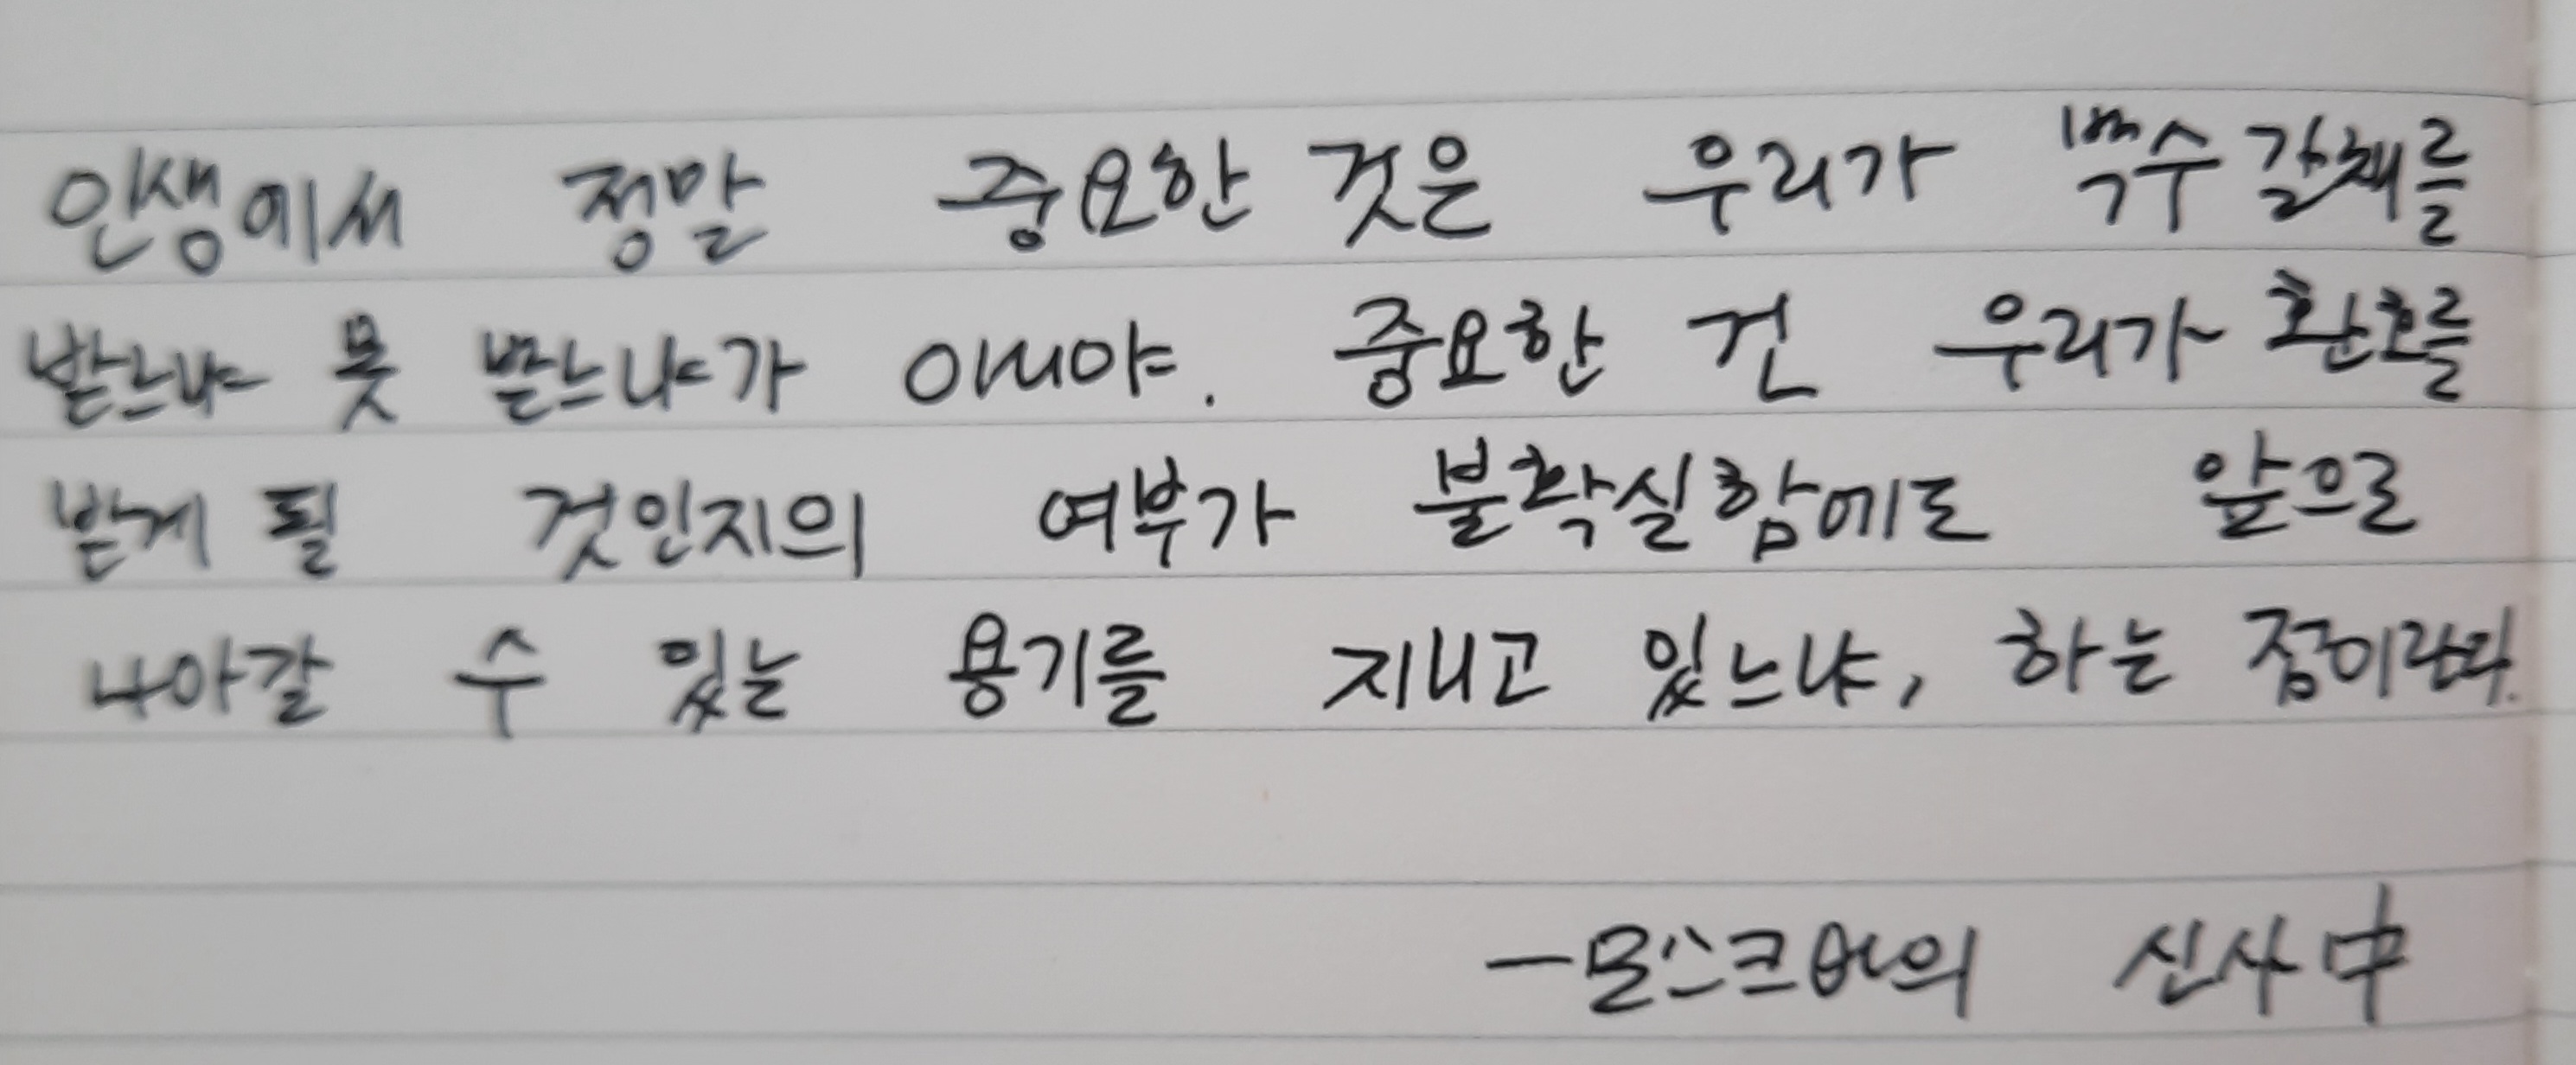 인생에서 정말 중요한 것은 우리가 박수갈채를
받느냐 못 받느냐가 아니야. 중요한 건 우리가 환호를
받게 될 것인지의 여부가 불확실함에도 앞으로
나아갈 수 있는 용기를 지니고 있느냐, 하는 점이란다.
-모스크바의 신사 中